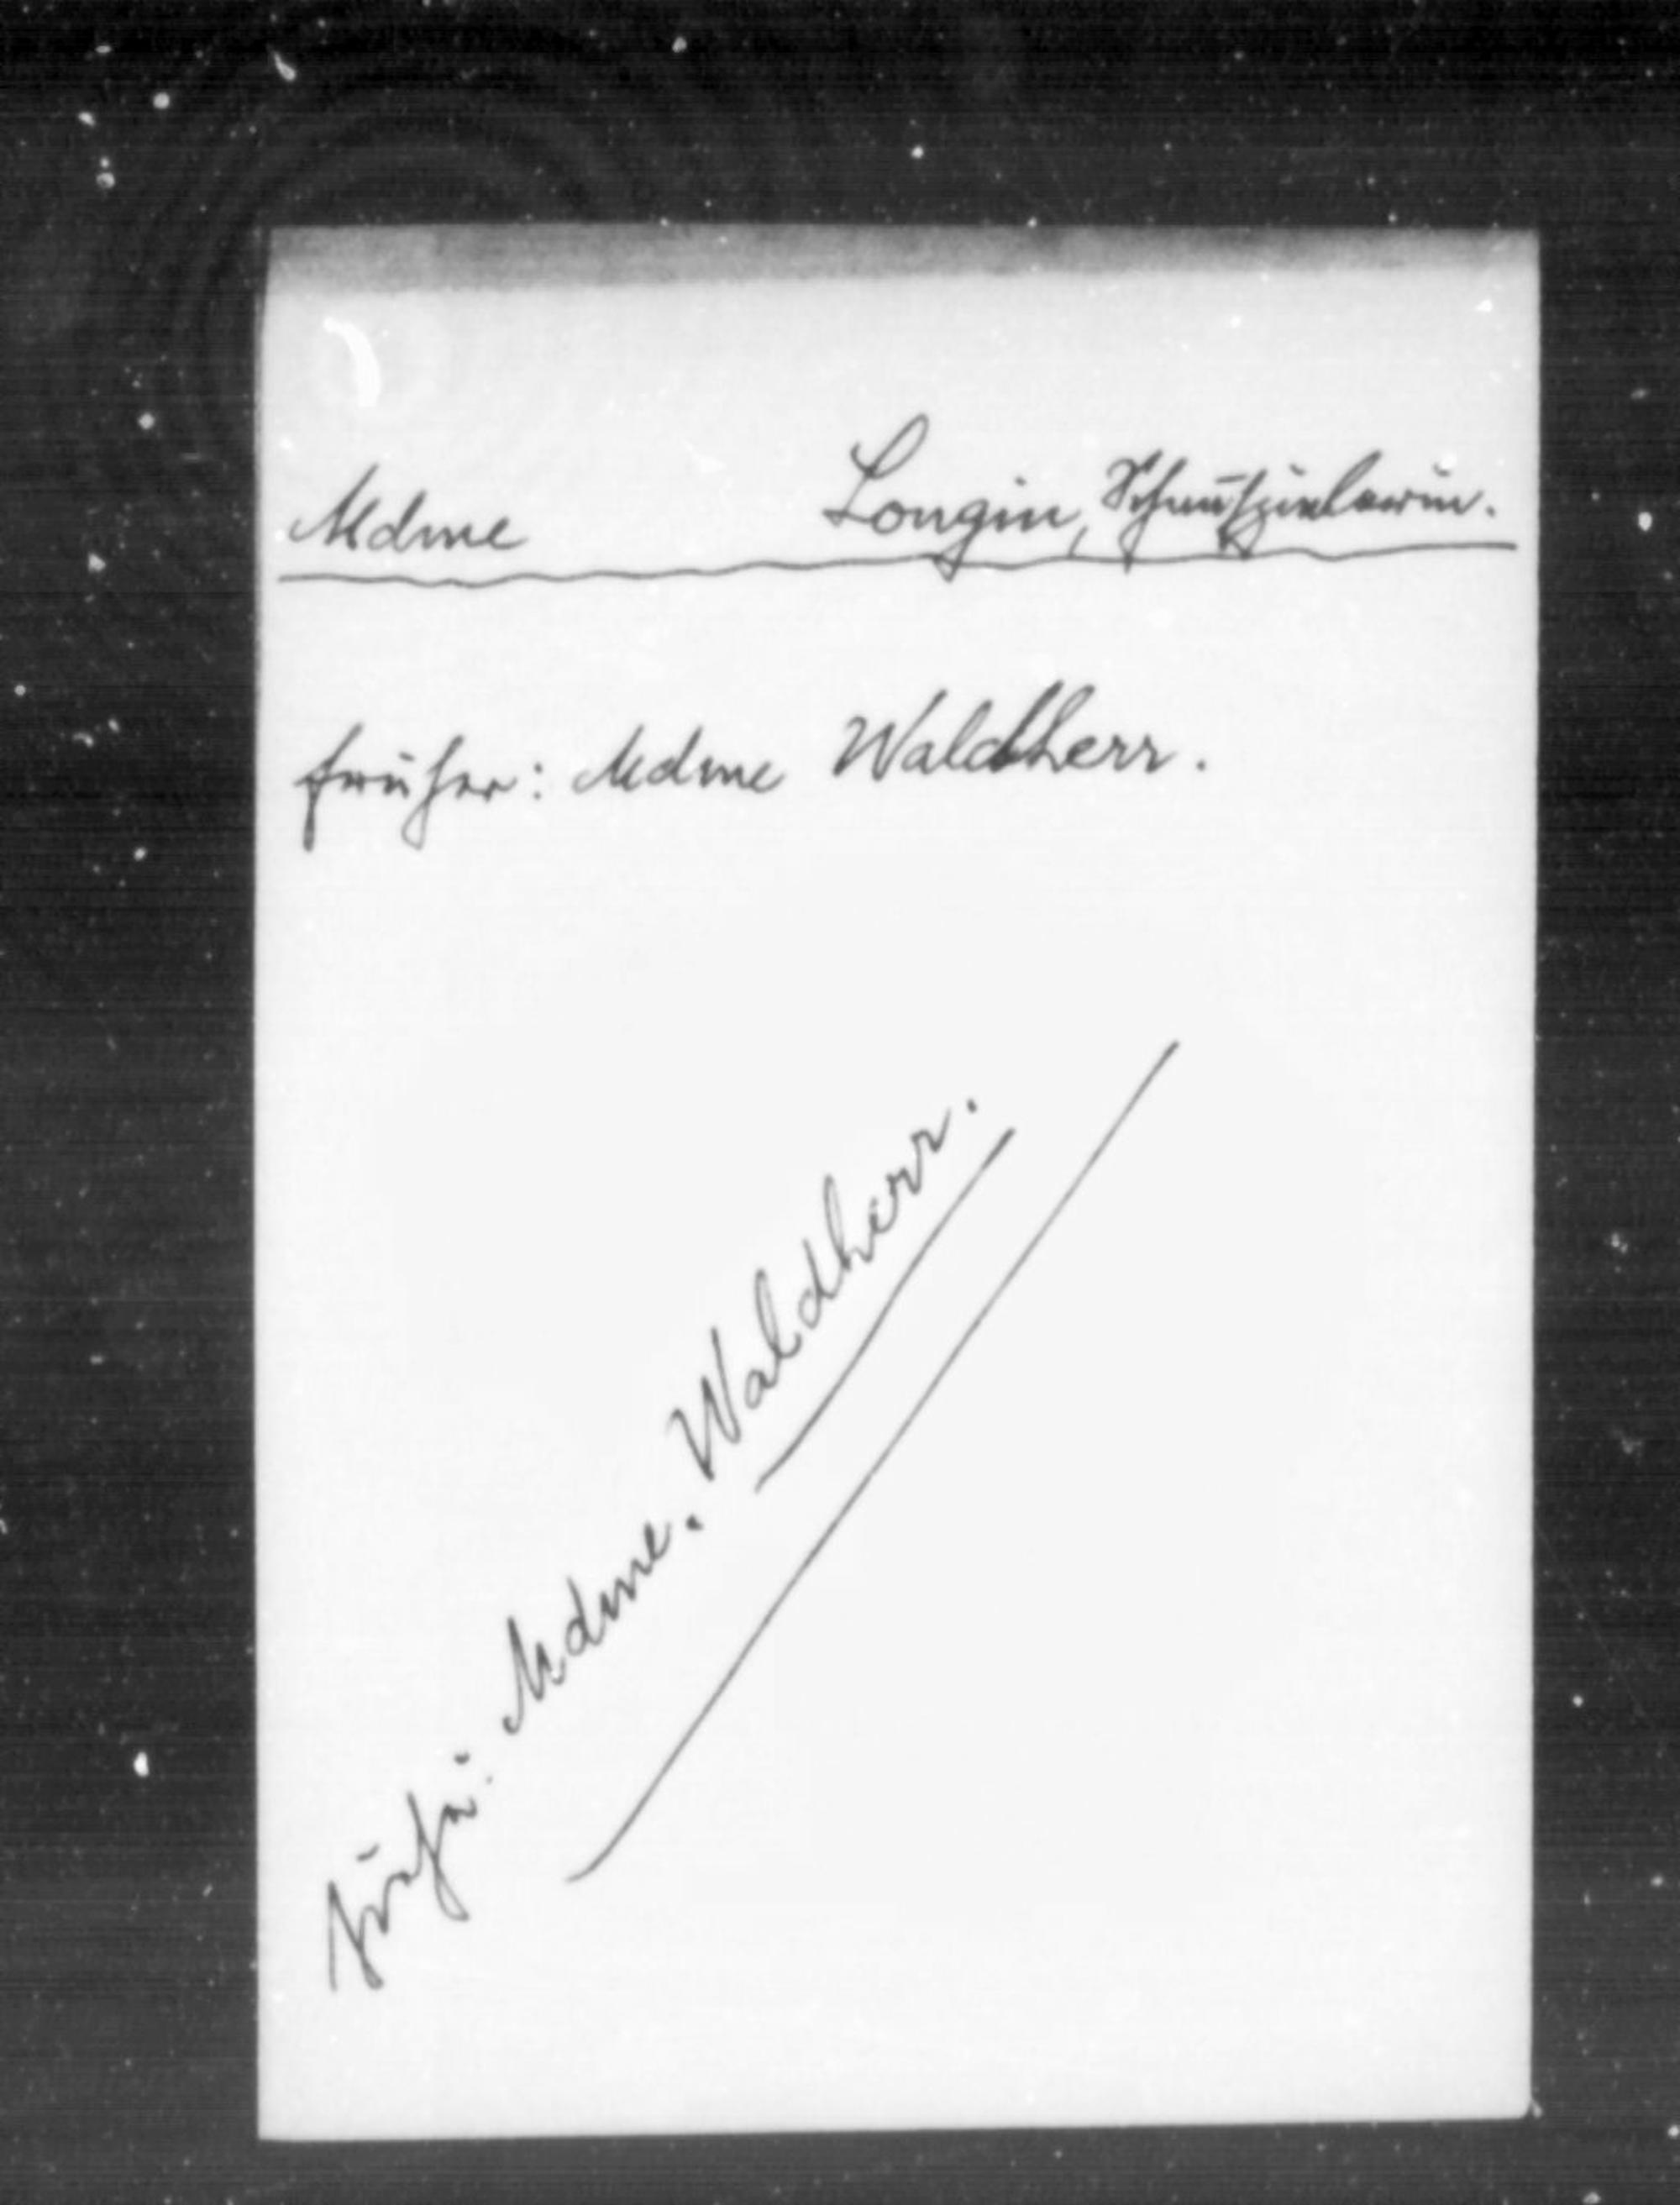 Mdme Longin, Schauspielerin.
früher: Mdme Waldherr.
siehe: Mdme. Waldherr.